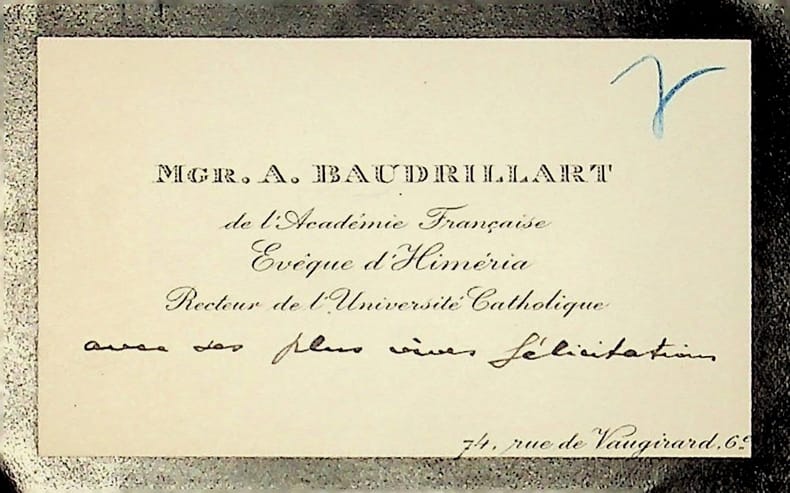 MGR. A. BAUDRILLART
de l'Académie Française
Evêque d'Himéria
Recteur de l'Université Catholique
avec ses plus vives félicitations
74, rue de Vaugirard. 6e